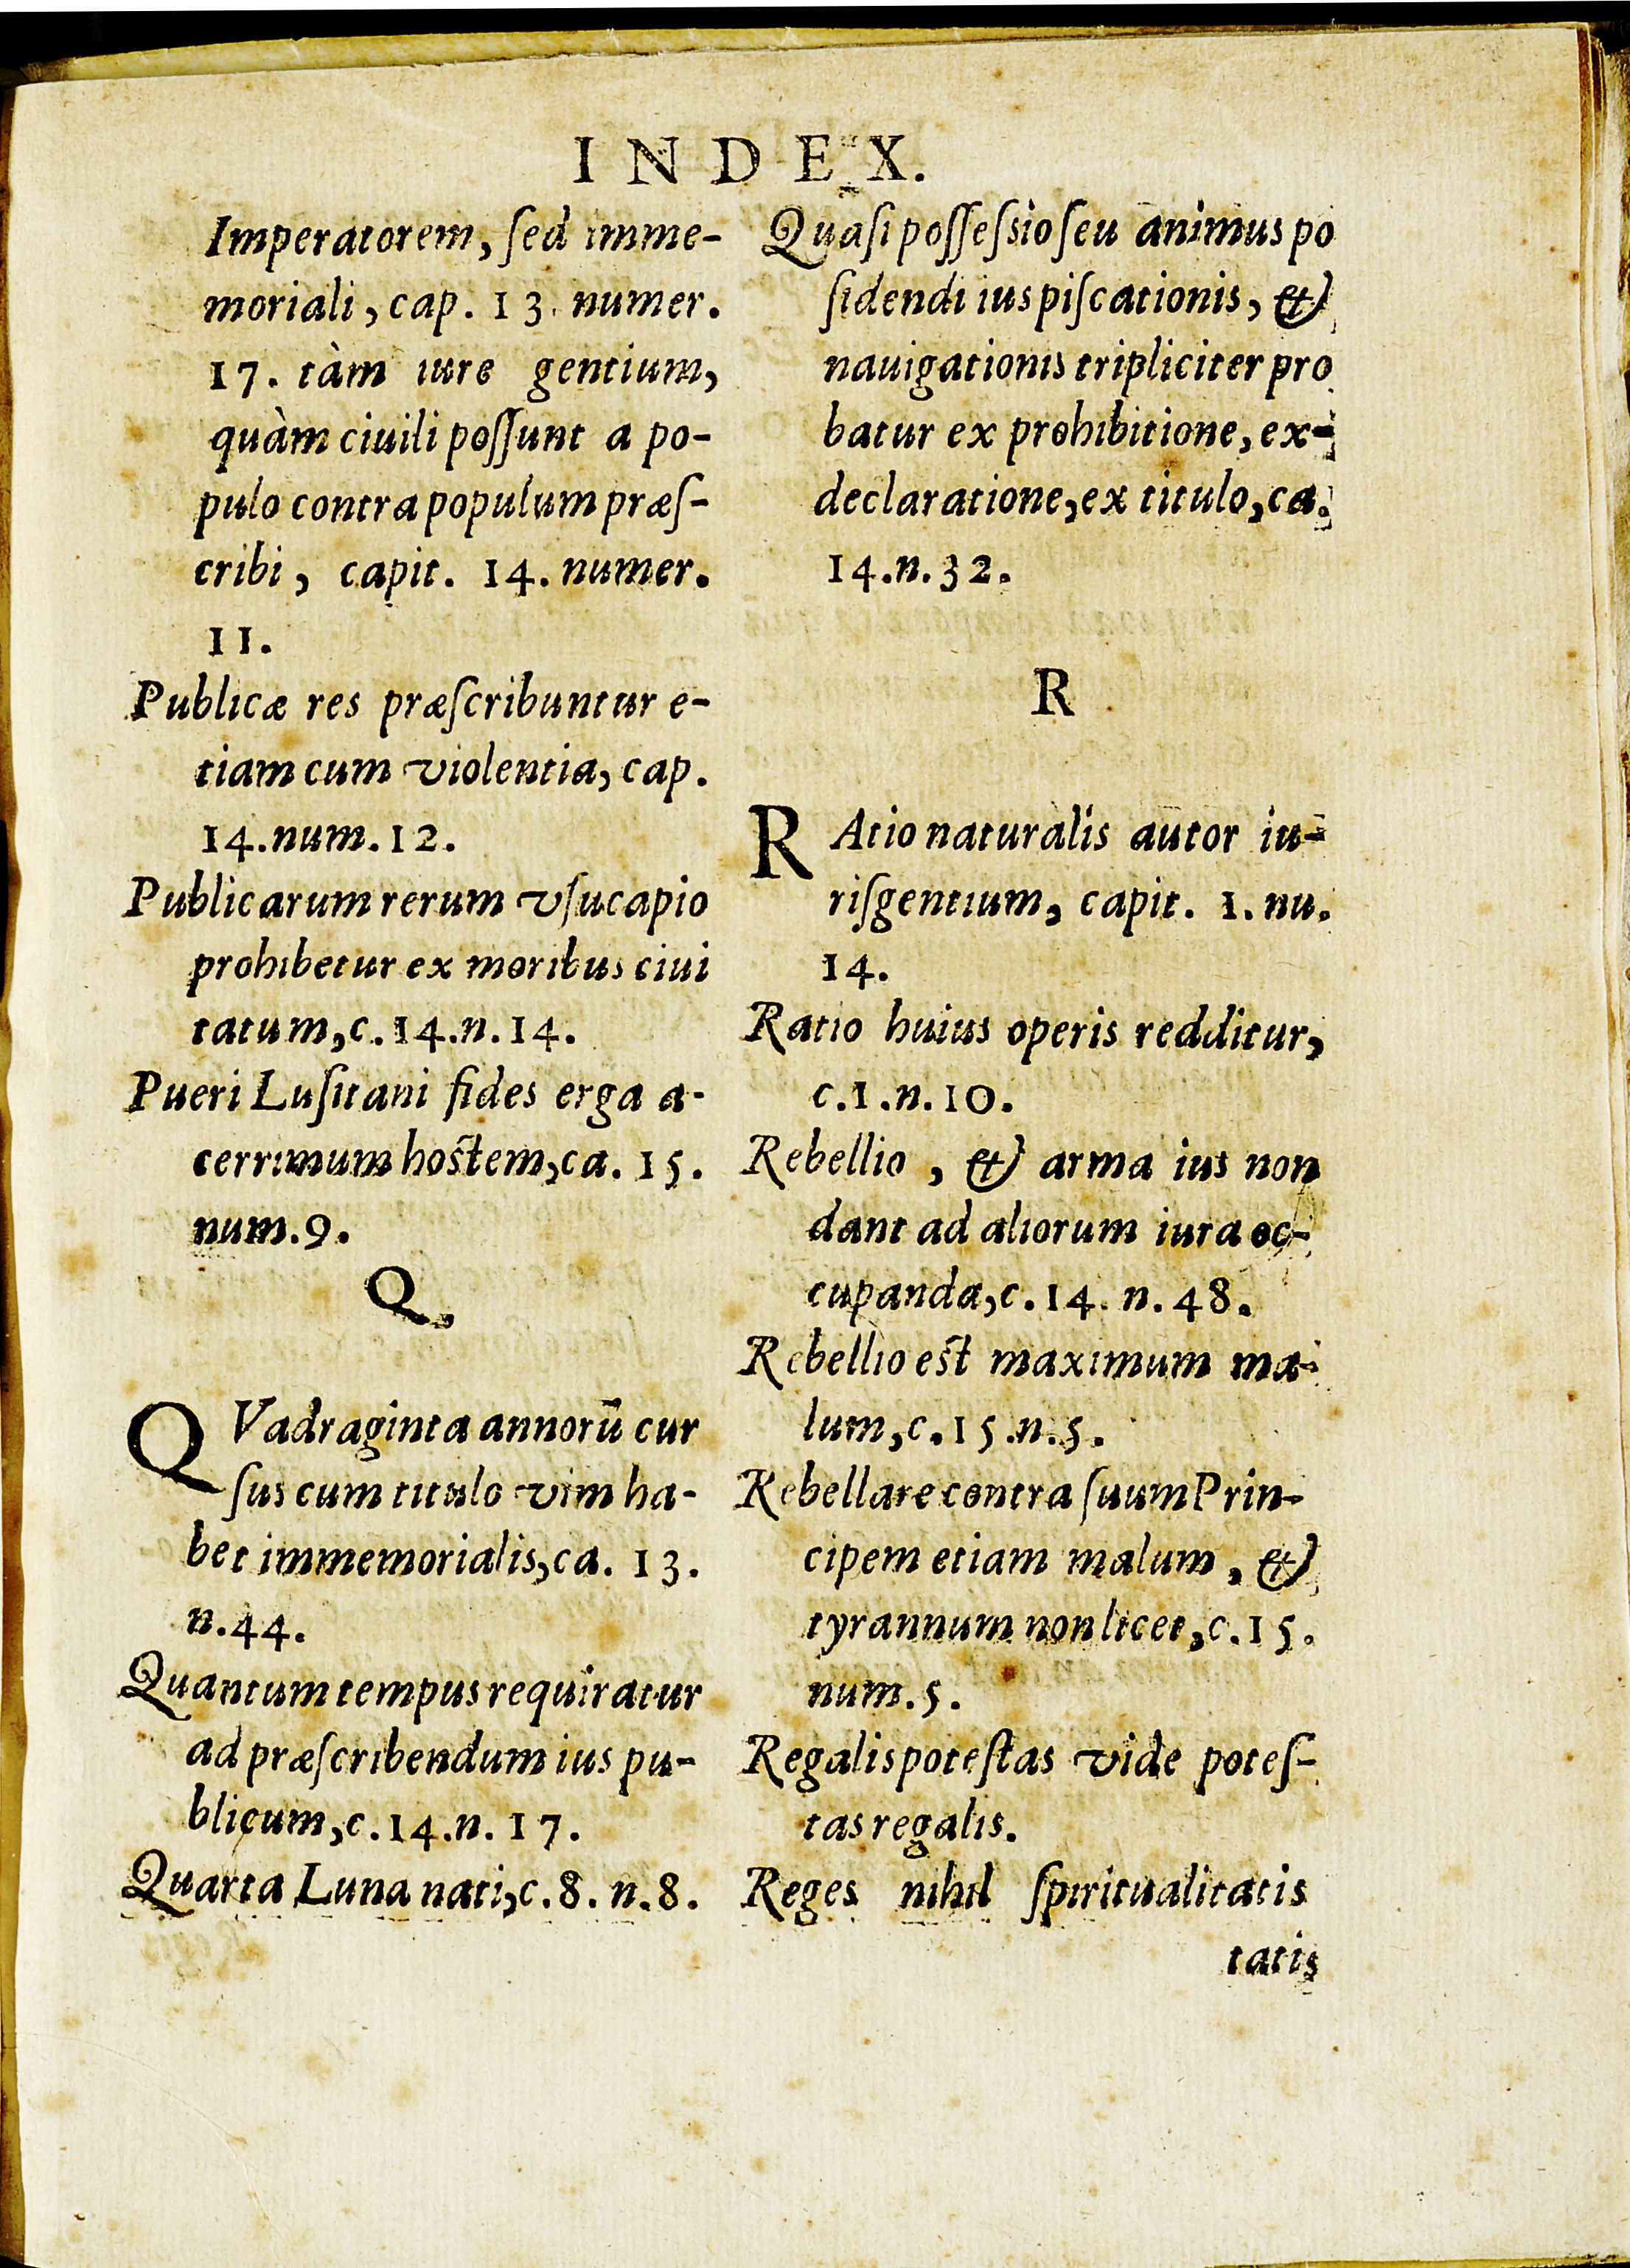 INDEX.
Imperatorem, ſed imme-
moriali, cap. 13. numer.
17. tàm iure gentium,
quàm ciuili poſſunt a po-
pulo contra populum præſ-
cribi, capit. 14. numer.
11.
Publicæ res præſcribuntur e-
tiam cum violentia, cap.
14.num.12.
Publicarum rerum vſucapio
prohibetur ex moribus ciui
tatum, c.14.n.14.
Pueri Luſitani fides erga a-
cerrimum hoſtem, ca. 15.
num.9.
Q.
QVadraginta annorũ cur
ſus cum titulo vim ha-
bet immemorialis, ca. 13.
n.44.
Quantum tempus requiratur
ad præſcribendum ius pu-
blicum, c.14.n.17.
Quarta Luna nati, c.8. n.8.
Quaſi poſſeſsio ſeu animus po
ſidendi ius piſcationis, &
nauigationis tripliciter pro
batur ex prohibitione, ex-
declaratione, ex titulo, ca.
14.n.32.
R
RAtio naturalis autor iu-
riſgentium, capit. 1. nu.
14.
Ratio huius operis redditur,
c.1.n.10.
Rebellio, & arma ius non
dant ad aliorum iura oc-
cupanda, c.14. n.48.
Rebellio eſt maximum ma-
lum, c.15.n.5.
Rebellare contra ſuum Prin-
cipem etiam malum, &
tyrannum non licet, c.15.
num.5.
Regalis poteſtas vide poteſ-
tas regalis.
Reges nihil ſpiritualitatis
tatis